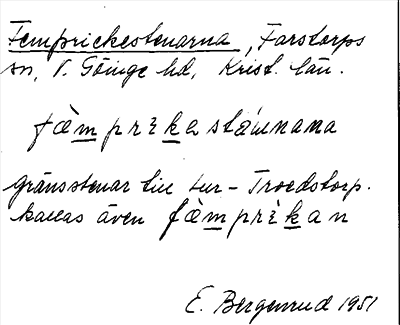 Femprickestenarna, Farstorps
sn, V. Göinge hd, Krist. län.
fæ̀mprìkastáinana
gränsstenar till Lur-Troedstorp.
kallas även fæ̀mprìkan
E. Bergenrud 1951